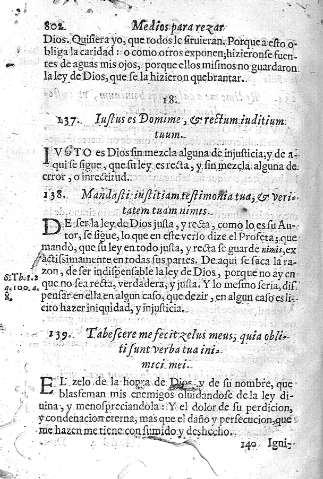 802. Medios para rezar
Dios. Quisiera yo, que todos le siruieran. Porque a esto o-
bliga la caridad: o como otros exponen; hizieronse fuen-
tes de aguas mis ojos, porque ellos mismos no guardaron
la ley de Dios, que se la hizieron quebrantar.
18.
137. Iustus es Domime, & rectum iuditium
tuum.
IVSTO es Dios sin mezcla alguna de injusticia; y de a-
qui se sigue, que su ley es recta, y sin mezcla alguna de
error, o inrectitud.
138. Mandasti iustitiam testimonia tua, & veri-
tatem tuam nimis.
DE ser la ley de Dios justa, y recta, como lo es su Au-
tor, se sigue, lo que en este verso dize el Profeta; que
mandò, que su ley en todo justa, y recta se guarde nimis, ex
actissimamente en todas sus partes. De aqui se saca la ra-
S. Th. 1. 2 zon, de ser indispensable la ley de Dios, porque no ay en
q. 100. a. que no sea recta, verdadera, y justa. Y lo mesmo seria, dis
8. pensar en ella en algun caso, que dezir, en algun caso es li-
cito hazer iniquidad, y injusticia.
139. Tabescere me fecit zelus meus, quia obli-
ti sunt verba tua ini-
mici mei.
EL zelo de la honra de Dios, y de su nombre, que
blasfeman mis enemigos oluidandose de la ley di-
uina, y menospreciandola: Y el dolor de su perdicion,
y condenacion eterna, mas que el daño y persecucion, que
me hazen me tiene consumido y deshecho.
140 Igni-